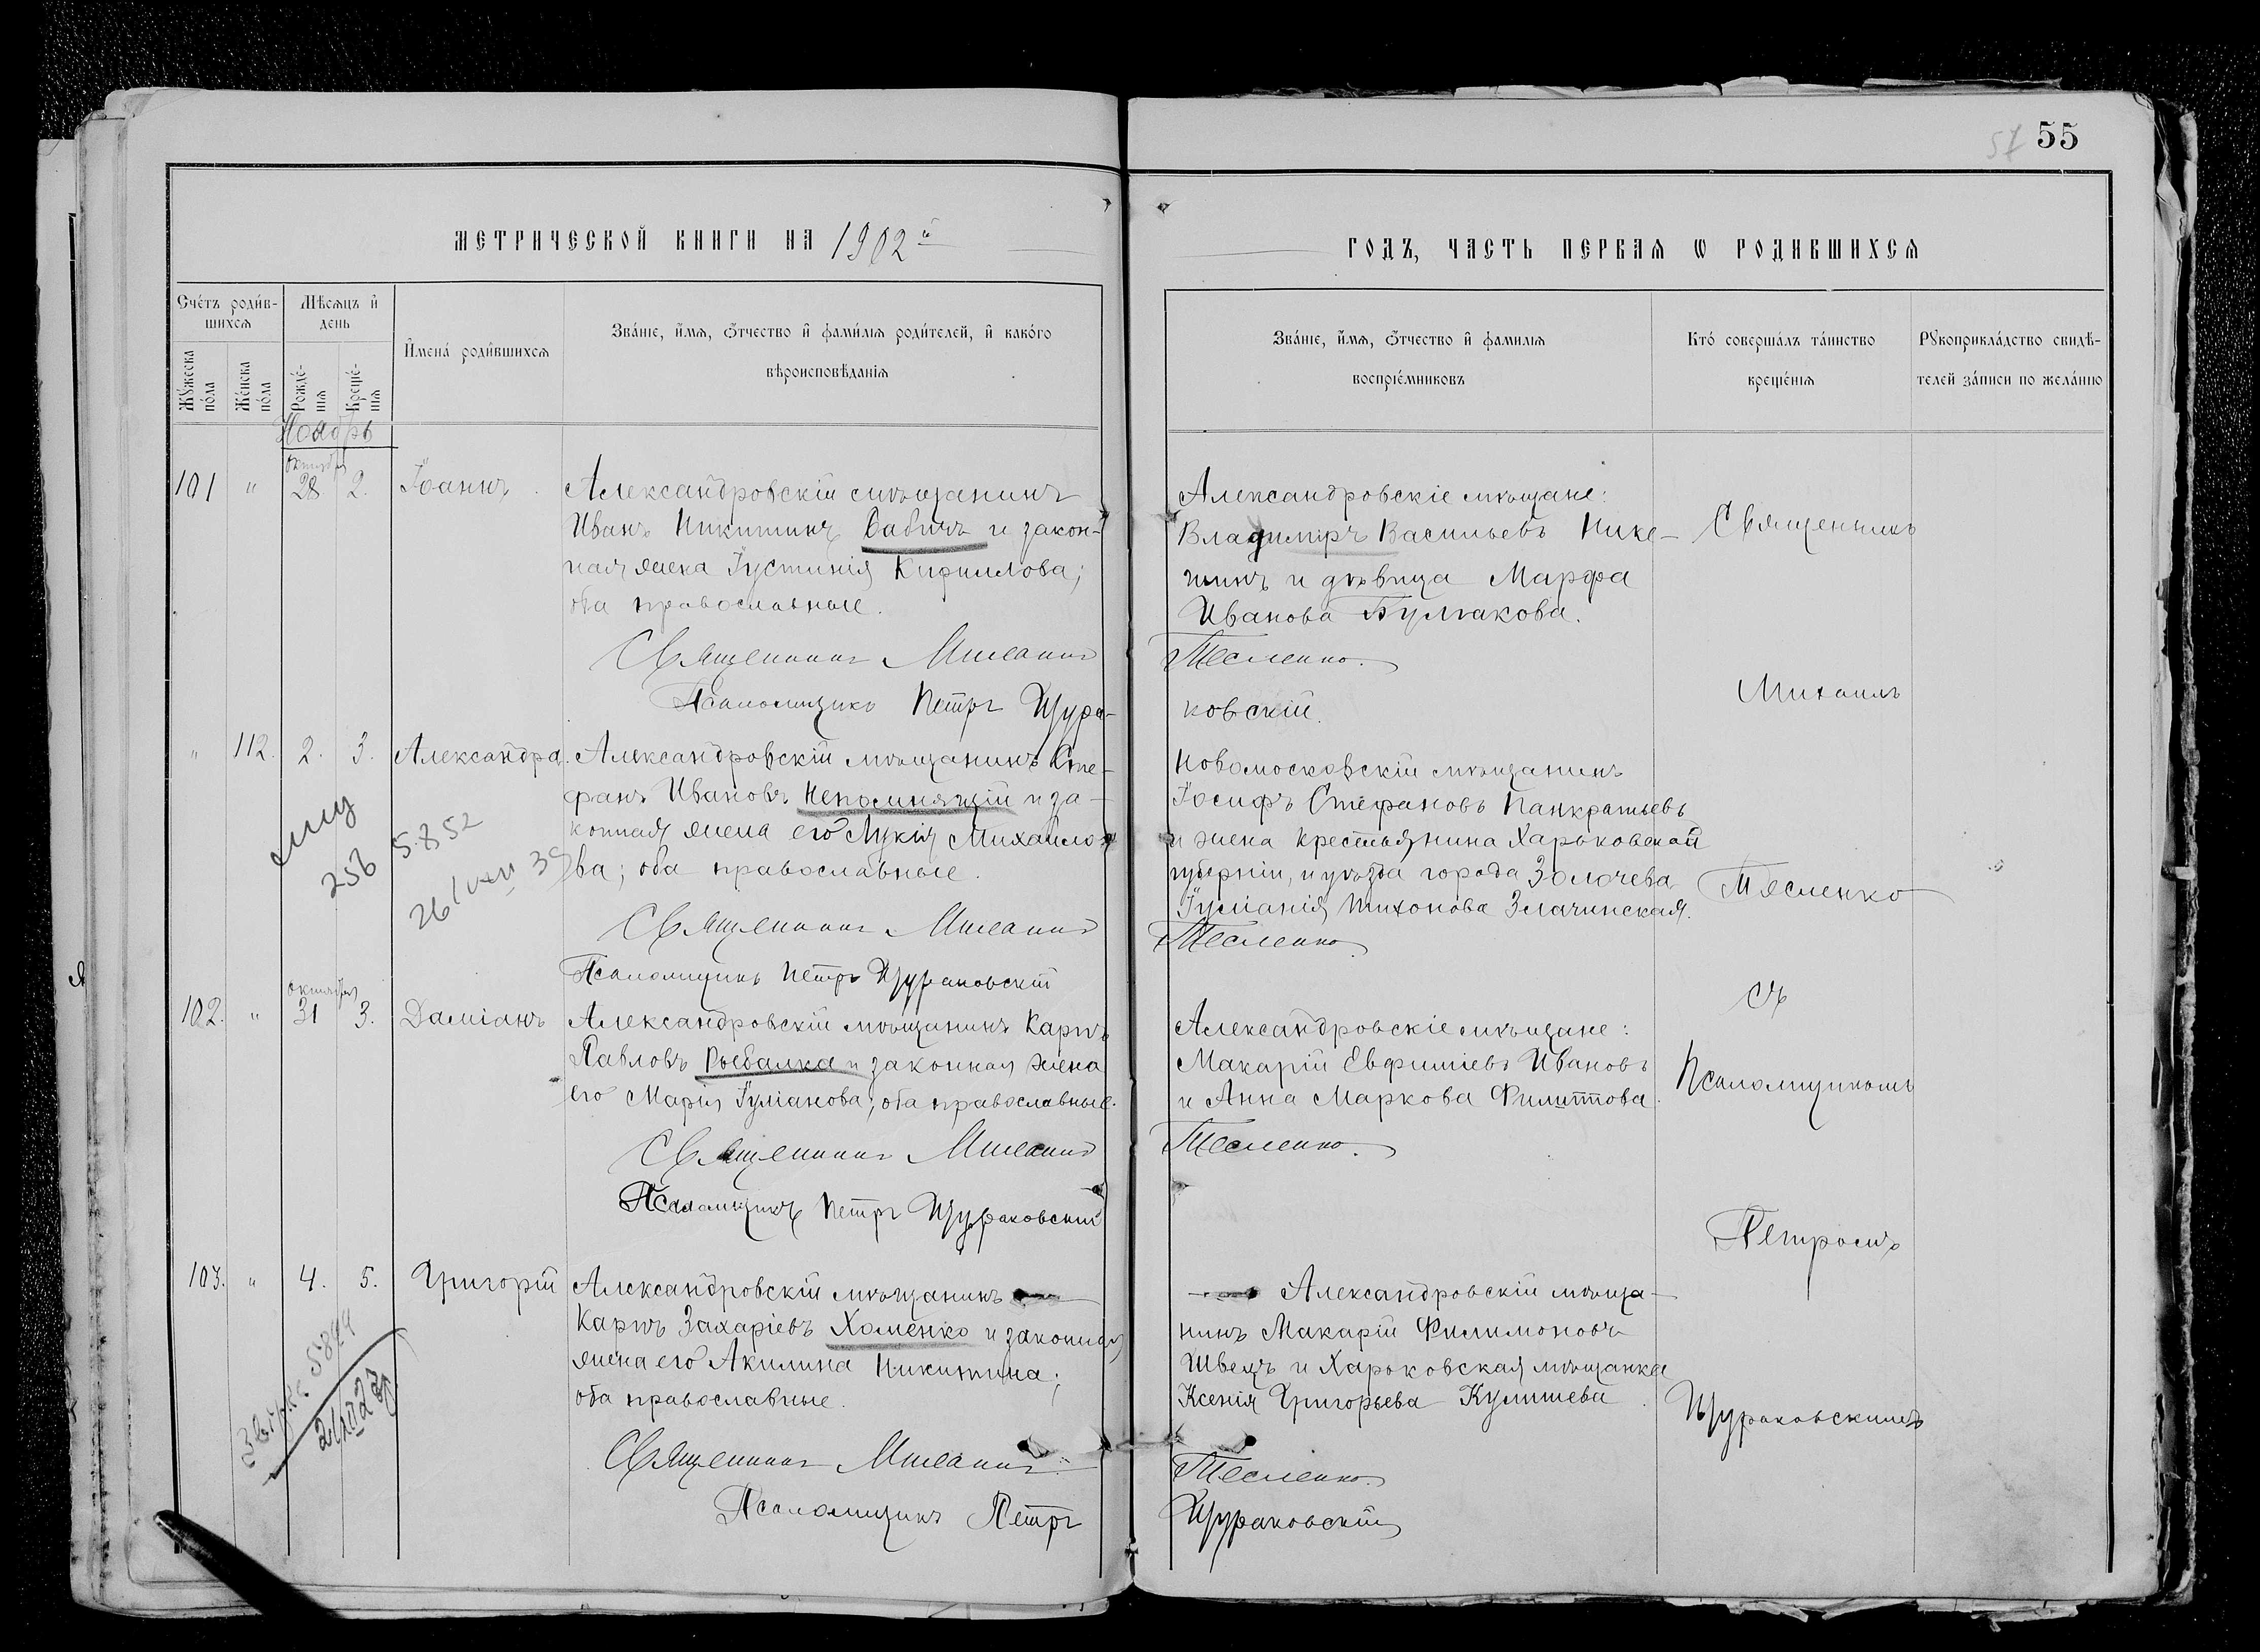 55
МЕТРИЧЕСКОЙ КНИГИ НА 1902й
ГОДЪ, ЧАСТЬ ПЕРВАЯ Ѡ РОДИВШИХСЯ
Сче́тъ роди́в-
шихсѧ
Мѣ́сѧцъ и҆
день
Мꙋ́жеска
по́ла
Же́нска
по́ла
Рожде́-
нїѧ
Креще́-
нїѧ
И҆мена́ роди́вшихсѧ
Зва́нїе, и҆́мѧ, ѻ҆́тчество и҆ фами́лїѧ роди́телей, и҆ како́го
вѣроисповѣ́данїѧ
Зва́нїе, и҆́мѧ, ѻ҆́тчество и҆ фами́лїѧ
воспрїе́мниковъ
Кто́ соверша́лъ та́инство
креще́нїѧ
Рꙋкоприкла́дство свидѣ́-
телей за́писи по жела́нїю
Ноябрь
октября
101 " 28. 2. Іоаннъ
Александровскій мѣщанинъ
Иванъ Никитинъ Бабичъ и закон-
ная жена Іустинія Кириллова;
оба православные.
Священникъ Михаилъ
Псаломщикъ Петръ Щура-
Александровскіе мѣщане:
Владиміръ Васильевъ Нике-
шинъ и дѣвица Марфа
Иванова Булгакова.
Тесленко.
ковскій.
" 112. 2. 3. Александра.
Александровскій мѣщанинъ Сте-
фанъ Ивановъ Непомнящій и за-
конная жена его Лукія Михайло-
ва; оба православные.
Священникъ Михаилъ
Псаломщикъ Петръ Щураковскій
Новомосковскій мѣщанинъ
Іосифъ Стефановъ Панкратьевъ
и жена крестьянина Харьковской
губерніи, и уѣзда города Золочева
Іуліанія Тихонова Злачинская.
Тесленко.
256 5.8.52
октября
102. " 31 3. Даміанъ
Александровскій мѣщанинъ Карпъ
Павловъ Рыбалка и законная жена
его Марія Іуліанова; оба православные.
Священникъ Михаилъ
Псаломщикъ Петръ Щураковскій
Александровскіе мѣщане:
Макарій Евфиміевъ Ивановъ
и Анна Маркова Филиппова.
Тесленко.
103. " 4. 5. Григорій
Александровскій мѣщанинъ
Карпъ Захаріевъ Хоменко и законная
жена его Акилина Никитина;
оба православные.
Священникъ Михаилъ
Псаломщикъ Петръ
Александровскій мѣща-
нинъ Макарій Филимоновъ
Швецъ и Харьковская мѣщанка
Ксенія Григорьева Кулишева.
Тесленко.
Щураковскій
Священникъ
Михаилъ
Тесленко
съ
Псаломщикомъ
Петромъ
Щураковскимъ